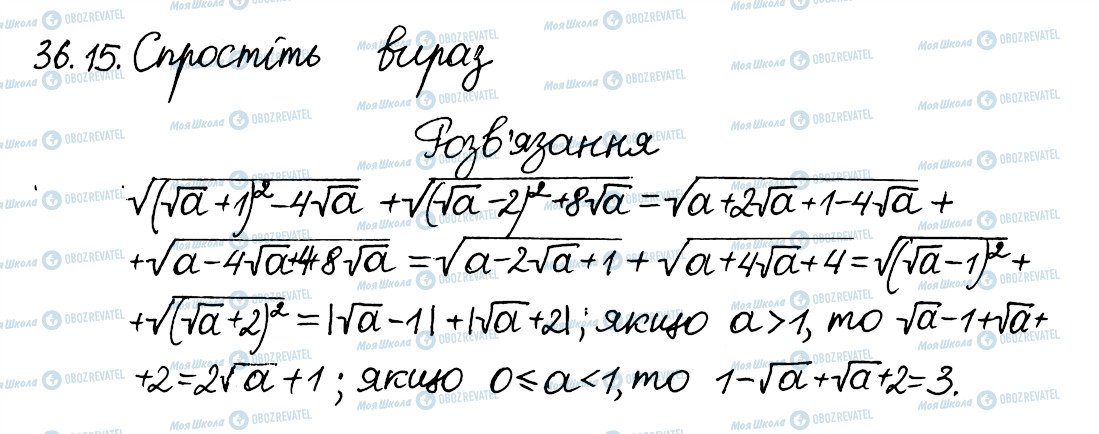 36.15. Спростіть вираз
Розв'язання
√((√a+1)²-4√a) + √((√a-2)²+8√a) = √(a+2√a+1-4√a) +
+√(a-4√a+4+8√a) = √(a-2√a+1) + √(a+4√a+4) = √((√a-1)²) +
+√((√a+2)²) = |√a-1| + |√a+2|; якщо a>1, то √a-1+√a+
+2=2√a+1; якщо 0≤a<1, то 1-√a+√a+2=3.
Моя Школа OBOZREVATEL